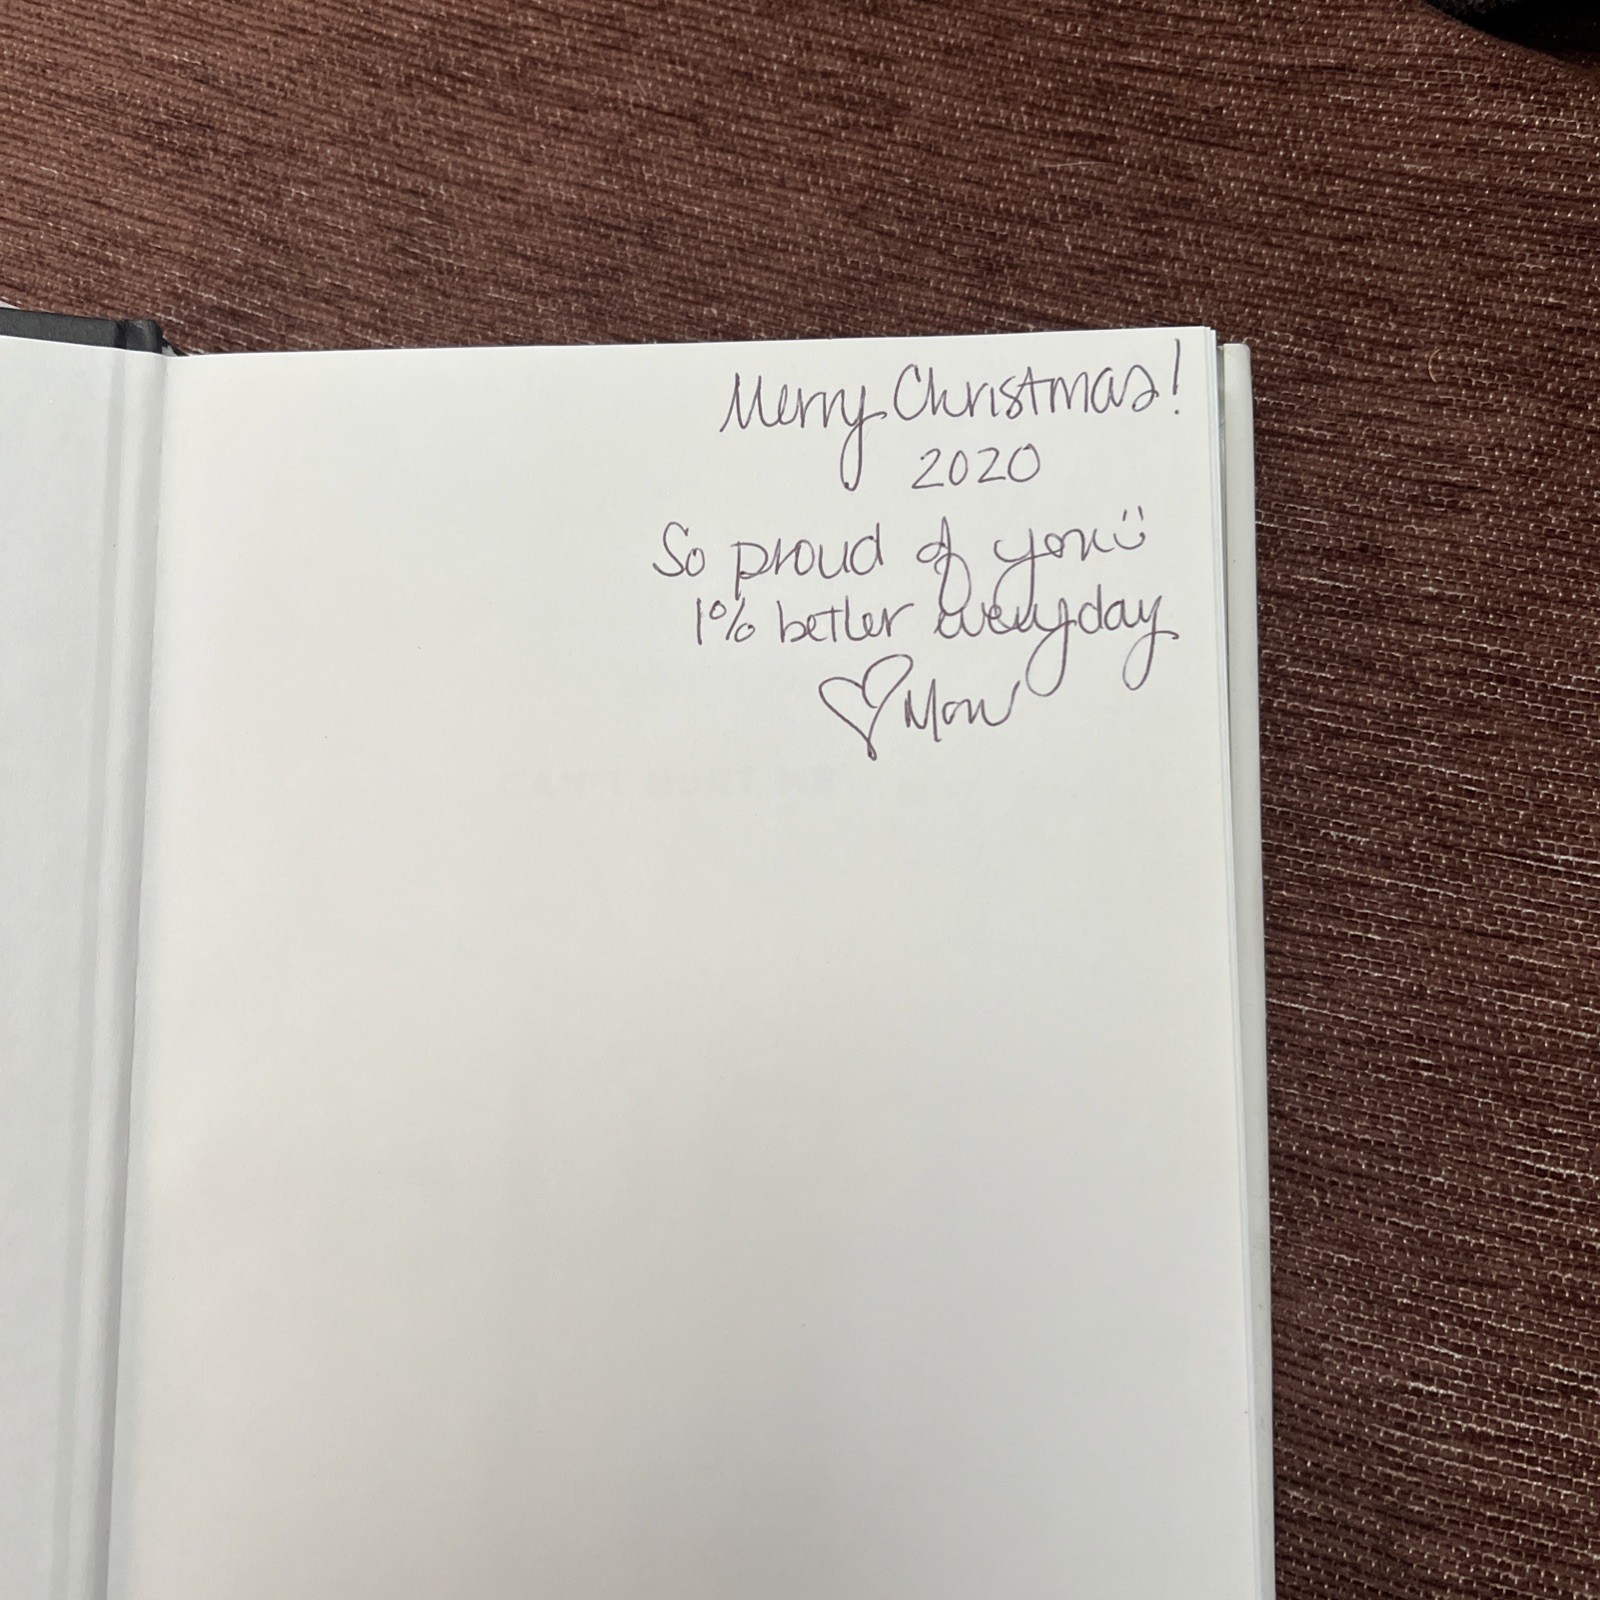 Merry Christmas!
2020
So proud of you :)
1% better everyday
♡ Mom
CAN'T HURT ME